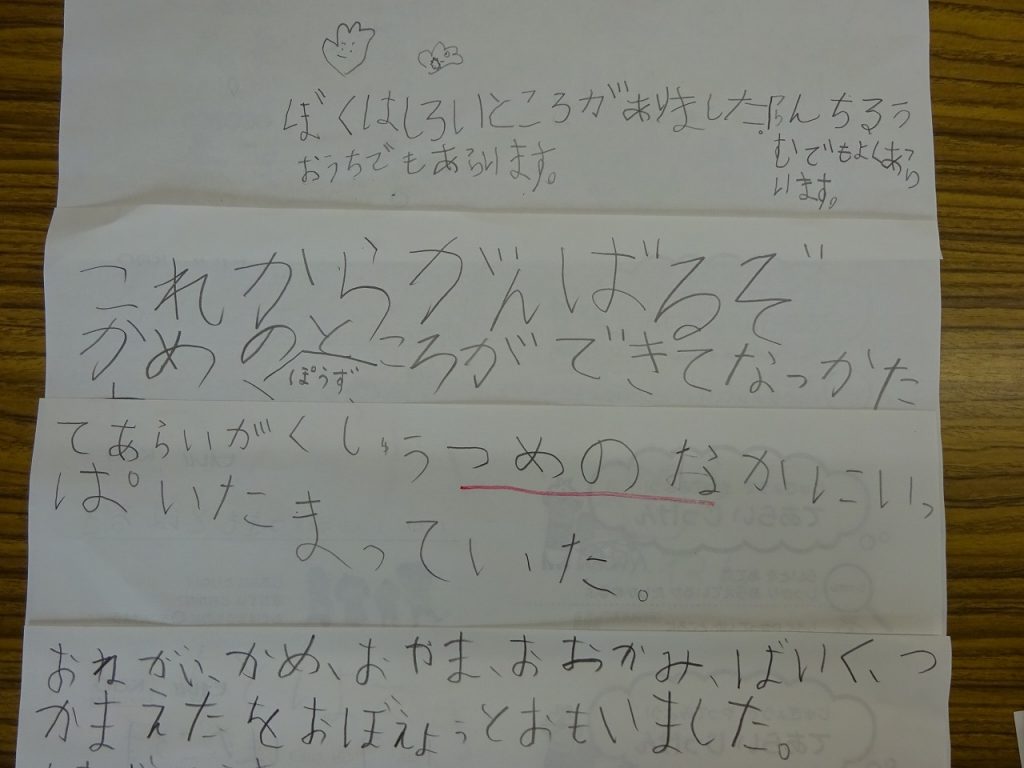 ぼくはしろいところがありました。らんちるう
むでもよくあら
います。
おうちでもあらいます。
これからがんばるぞ
かめのところができてなっかた
ぽうず
てあらいがくしゅうつめのなかにいっ
ぱいたまっていた。
おねがい、かめ、おやま、おおかみ、ばいく、つ
かまえたをおぼえよぅとおもいました。